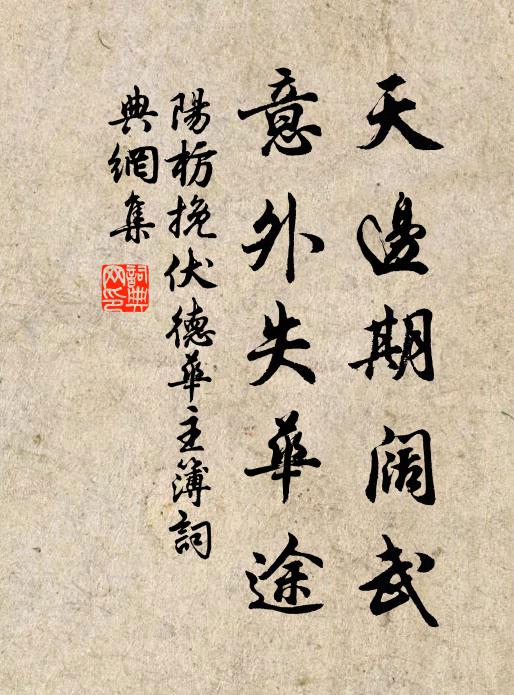 天邊期闊武
意外失華途
陽枋挽伏德華主簿詞
典網集
詞典網印